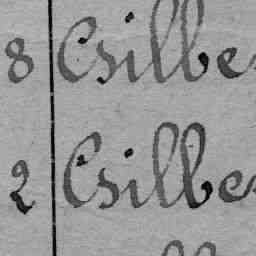 8 Csilbe
2 Csilbe